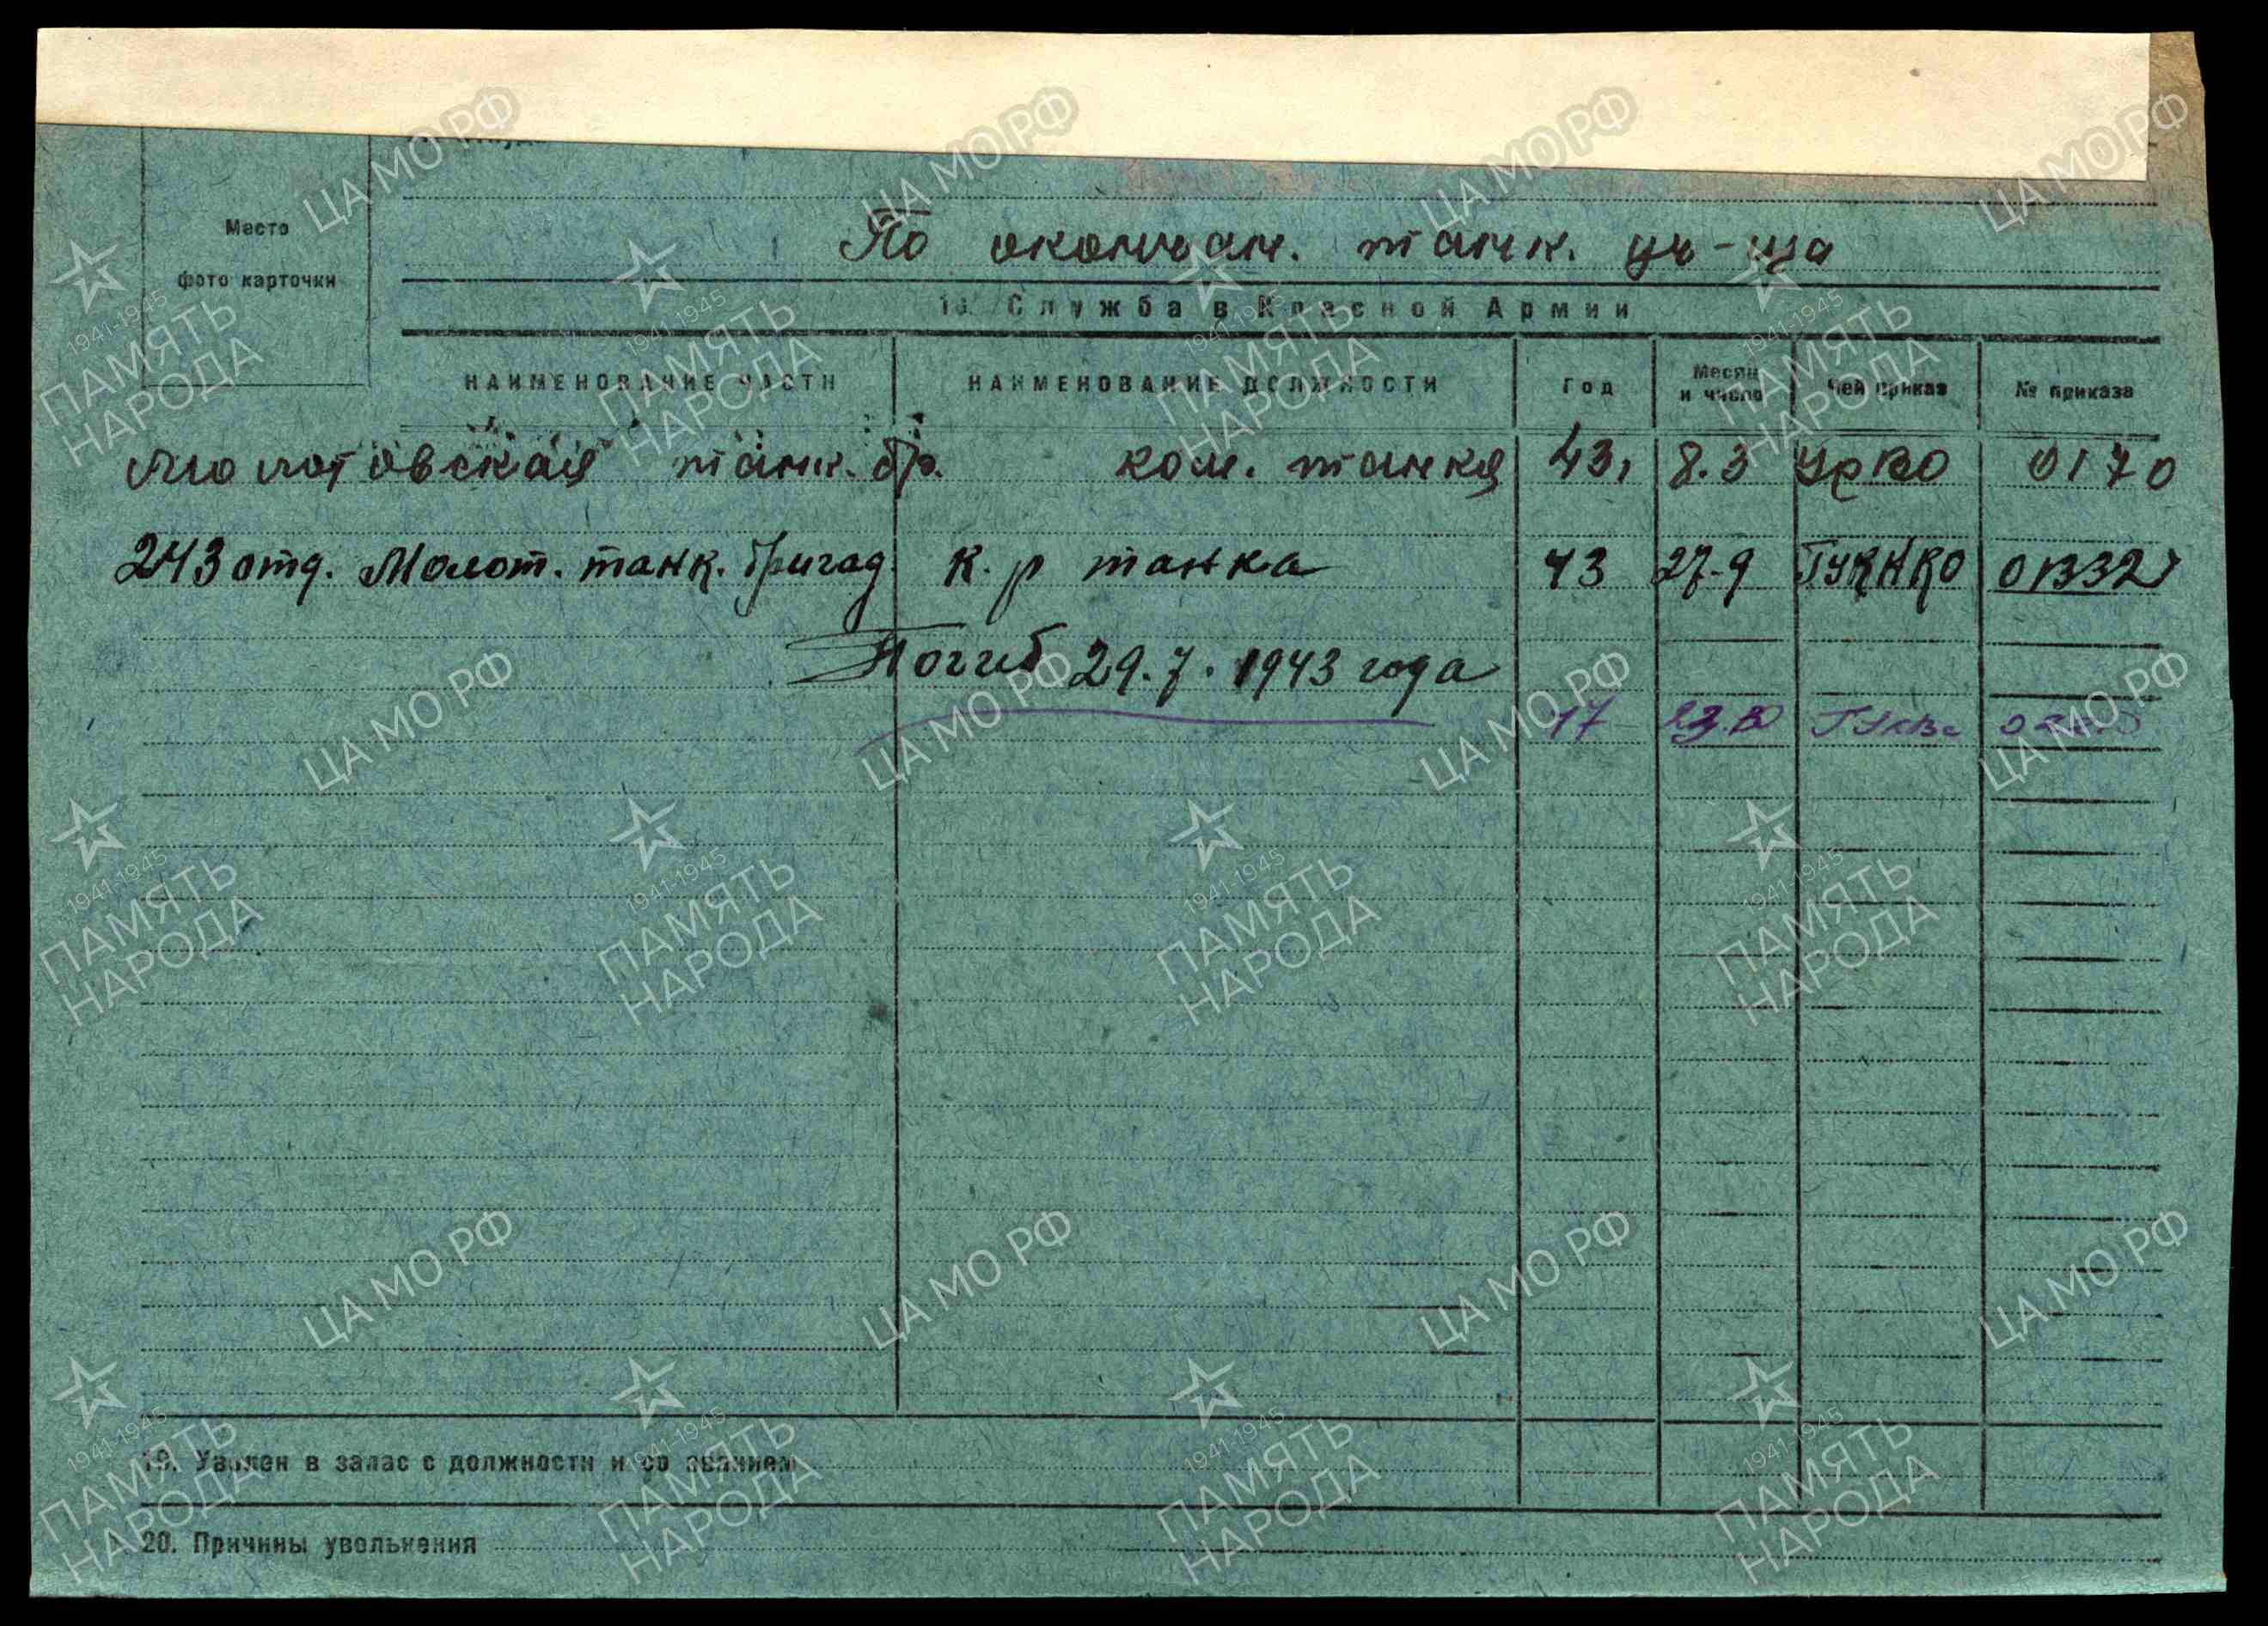 Место
фото карточки
По окончан. танк. уч-ща
18. Служба в Красной Армии
НАИМЕНОВАНИЕ ЧАСТИ НАИМЕНОВАНИЕ ДОЛЖНОСТИ Год Месяц и число Чей приказ № приказа
Молотовская танк. бр. ком. танка 43, 8.3 УрВО 0170
243 отд. Молот. танк. бригад. к-р танка 43 27-9 ГУКНКО 01332
Погиб 29.7.1943 года
23.10
19. Уволен в запас с должности и со званием
20. Причины увольнения
ЦА МО РФ
1941-1945
ПАМЯТЬ
НАРОДА